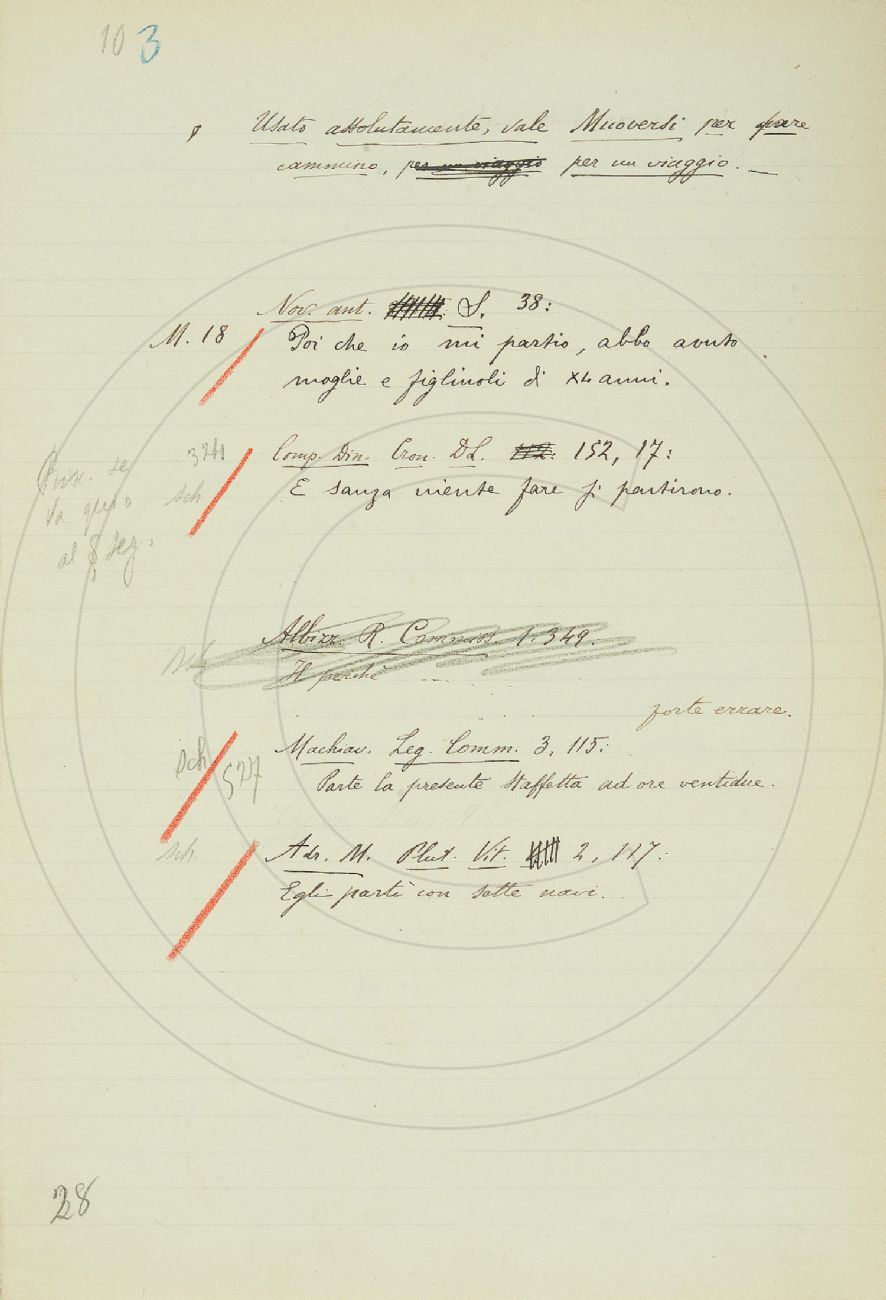 10 3
Usato assolutamente, vale Muoversi per fare
cammino, per un viaggio per un viaggio. —
Nov. ant. S. 38:
M. 18
Poi che io mi partio, abbo avuto
moglie e figliuoli di XL anni.
324 Comp. Din. Cron. DL. 112: 152, 17:
sch E sanza niente fare si partirono.
se
va
al § seg.
Albizz. R. Commiss. 1. 349.
Il perchè
forte errare.
sch Machiav. Leg. Comm. 3, 115:
527 Parte la presente staffetta ad ore ventidue.
sch. Adr. M. Plut. Vit. 2, 117:
Egli partì con sette navi.
28